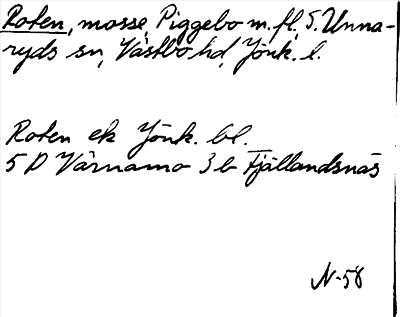 Roten, mosse, Piggebo m.fl, S. Unna-
ryds sn, Västbo hd, Jönk. l.
Roten ek Jönk. bl.
5 D Värnamo 3b Fjällandsnäs
N-58